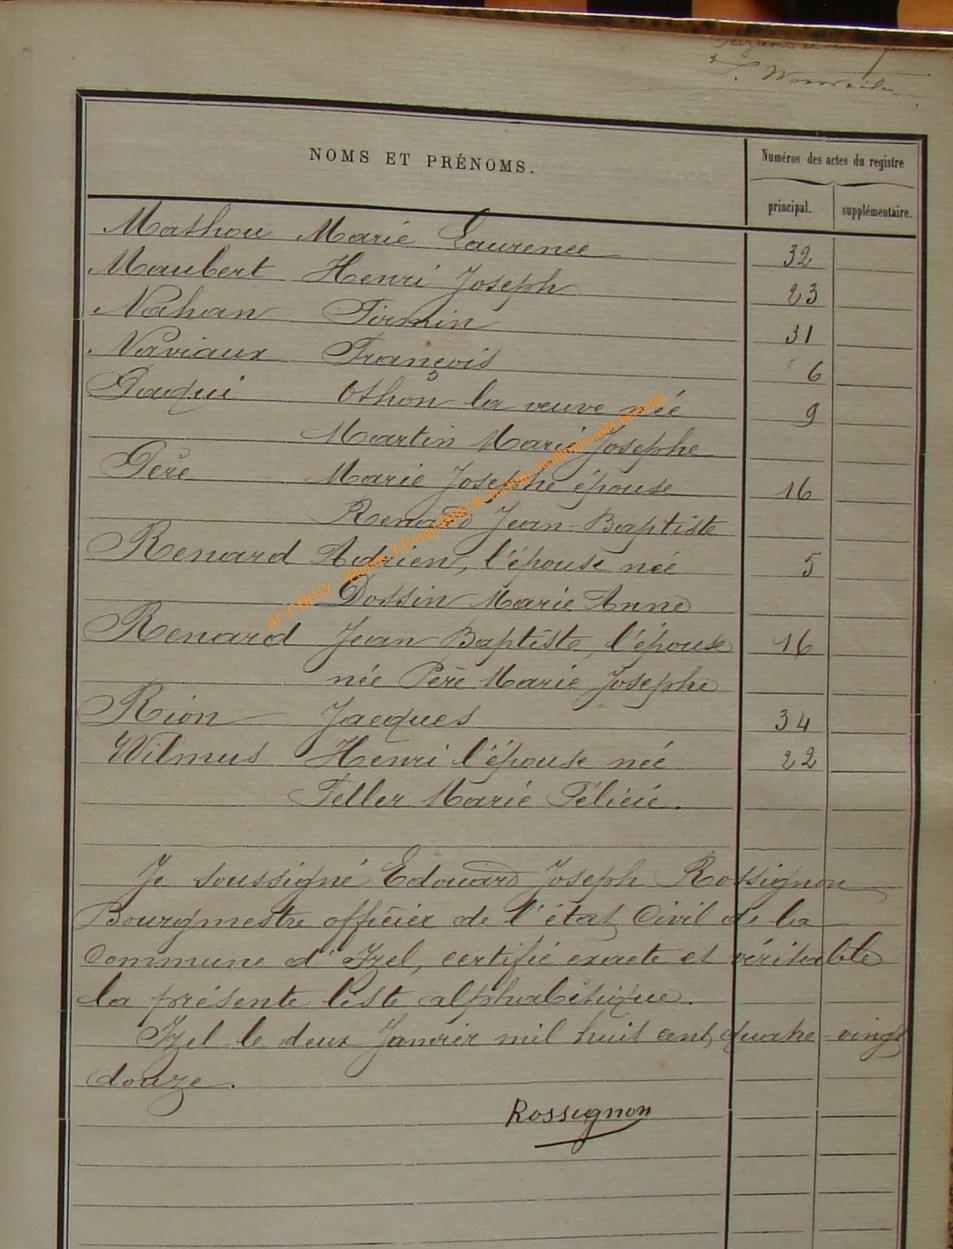 NOMS ET PRÉNOMS.
Numéros des actes du registre
principal.
supplémentaire.
Mathou Marie Laurence 32
Maubert Henri Joseph 23
Nahan Firmin 31
Naviaux François 6
Paqui Othon la veuve née 9
Martin Marie Josephe
Père Marie Josephe épouse 16
Renard Jean-Baptiste
Renard Adrien, l'épouse née 5
Dossin Marie Anne
Renard Jean Baptiste, l'épouse 16
née Père Marie Josephe
Rion Jacques 34
Wilmus Henri l'épouse née 22
Feller Marie Félicie.
Je soussigné Edouard Joseph Rossignon
Bourgmestre officier de l'état Civil de la
Commune d'Izel, certifie exacte et véritable
la présente liste alphabétique.
Izel le deux Janvier mil huit cent quatre-vingt
douze.
Rossignon